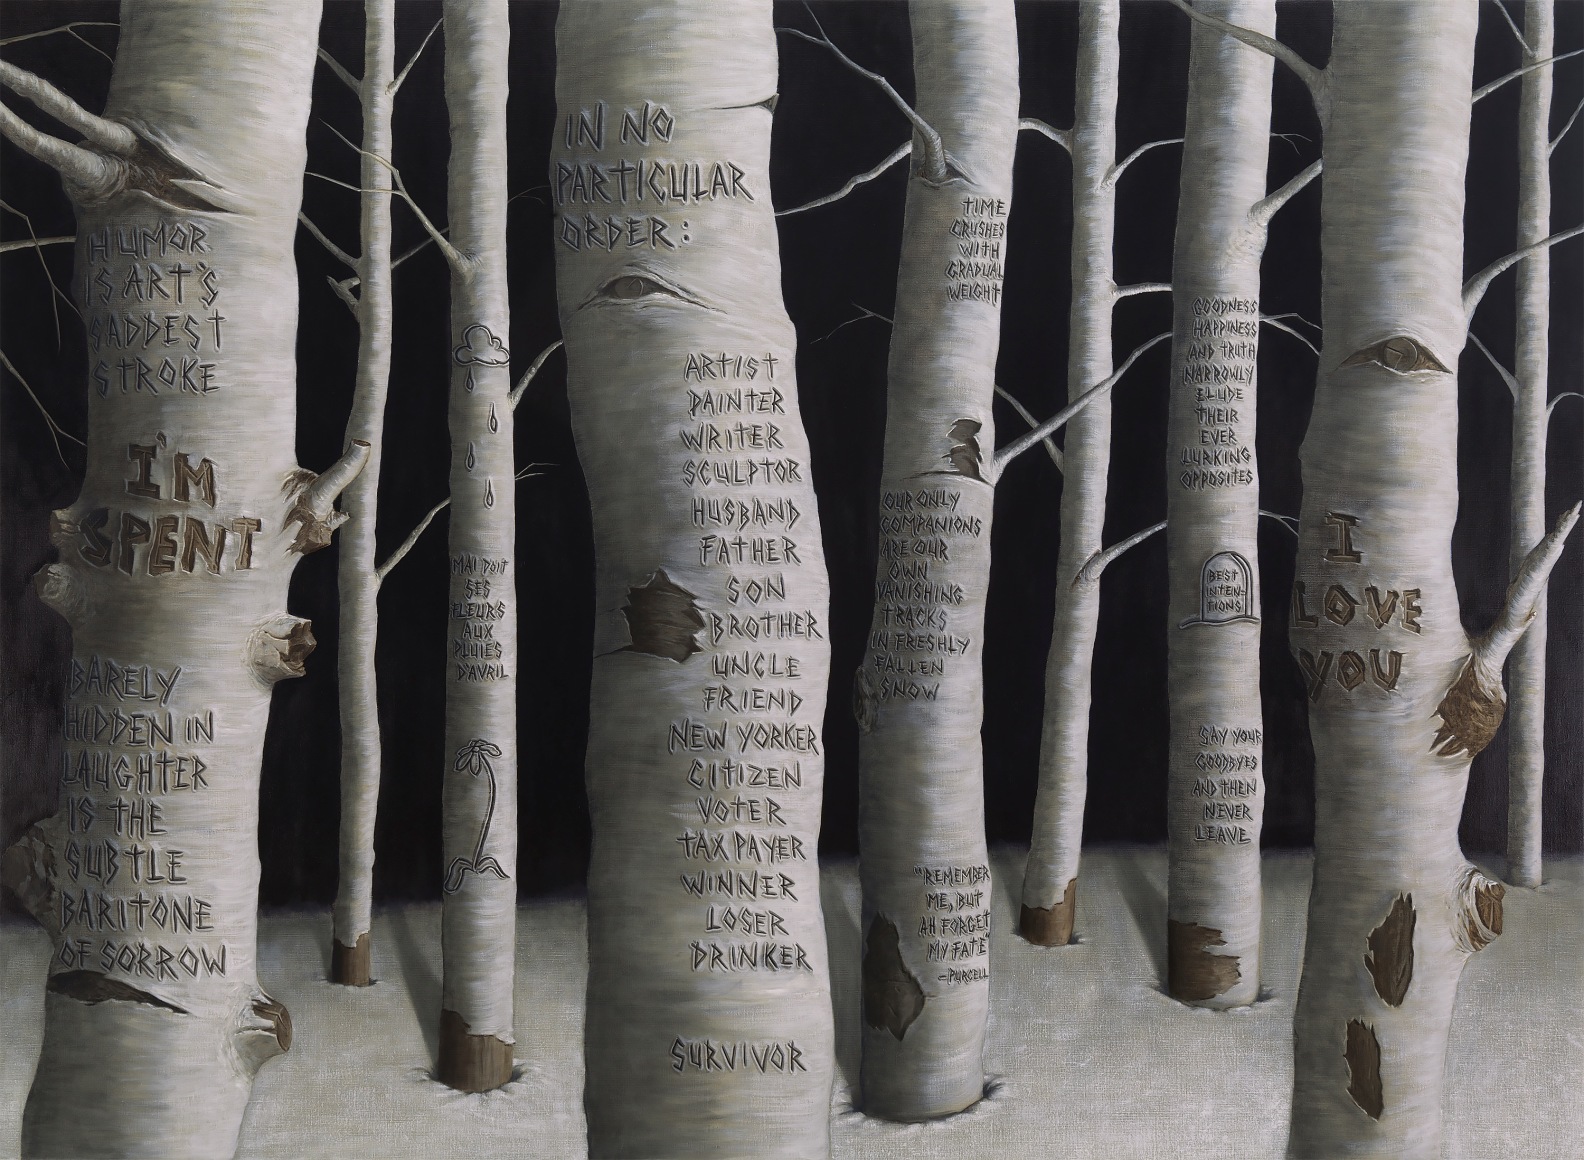 HUMOR
IS ART'S
SADDEST
STROKE
I'M
SPENT
BARELY
HIDDEN IN
LAUGHTER
IS THE
SUBTLE
BARITONE
OF SORROW
MAI DOIT
SES
FLEURS
AUX
PLUIES
D'AVRIL
IN NO
PARTICULAR
ORDER:
ARTIST
PAINTER
WRITER
SCULPTOR
HUSBAND
FATHER
SON
BROTHER
UNCLE
FRIEND
NEW YORKER
CITIZEN
VOTER
TAX PAYER
WINNER
LOSER
DRINKER
SURVIVOR
TIME
CRUSHES
WITH
GRADUAL
WEIGHT
OUR ONLY
COMPANIONS
ARE OUR
OWN
VANISHING
TRACKS
IN FRESHLY
FALLEN
SNOW
"REMEMBER
ME, BUT
AH FORGET
MY FATE"
-PURCELL
GOODNESS
HAPPINESS
AND TRUTH
NARROWLY
ELUDE
THEIR
EVER
LURKING
OPPOSITES
BEST
INTEN-
TIONS
SAY YOUR
GOODBYES
AND THEN
NEVER
LEAVE
I
LOVE
YOU